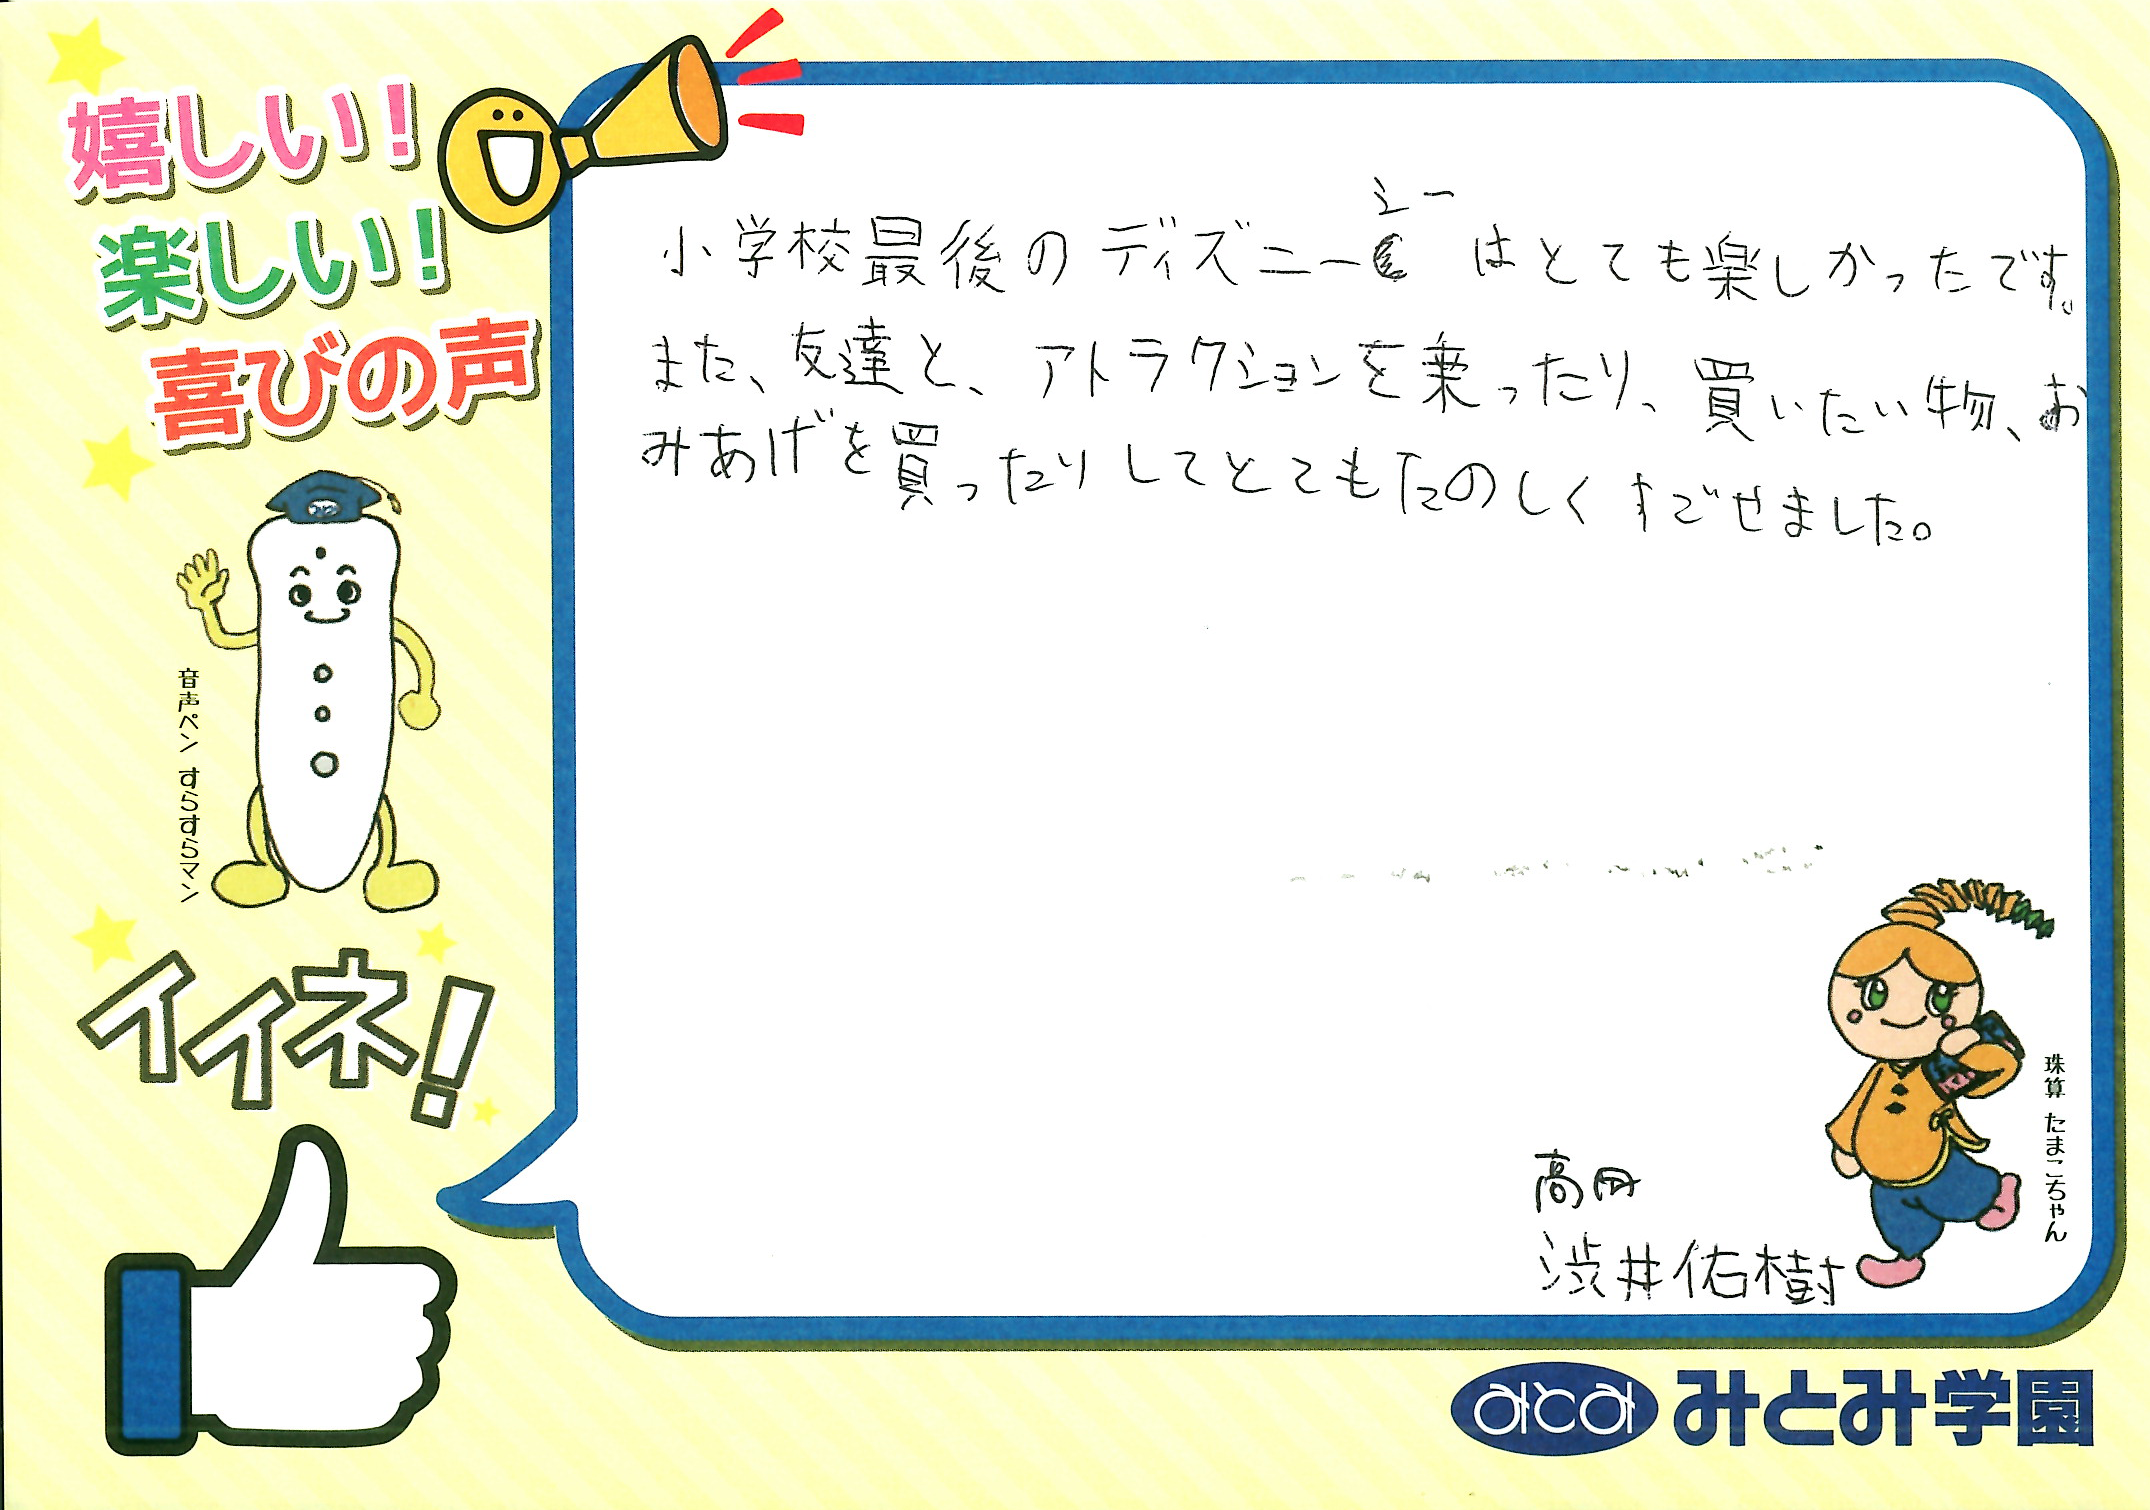 嬉しい!
楽しい!
喜びの声
音声ペン すらすらマン
イイネ!
小学校最後のディズニーシーはとても楽しかったです。
また、友達と、アトラクションを乗ったり、買いたい物、お
みあげを買ったりしてとてもたのしくすごせました。
高岡
渋井佑樹
珠算 たまこちゃん
みとみ みとみ学園